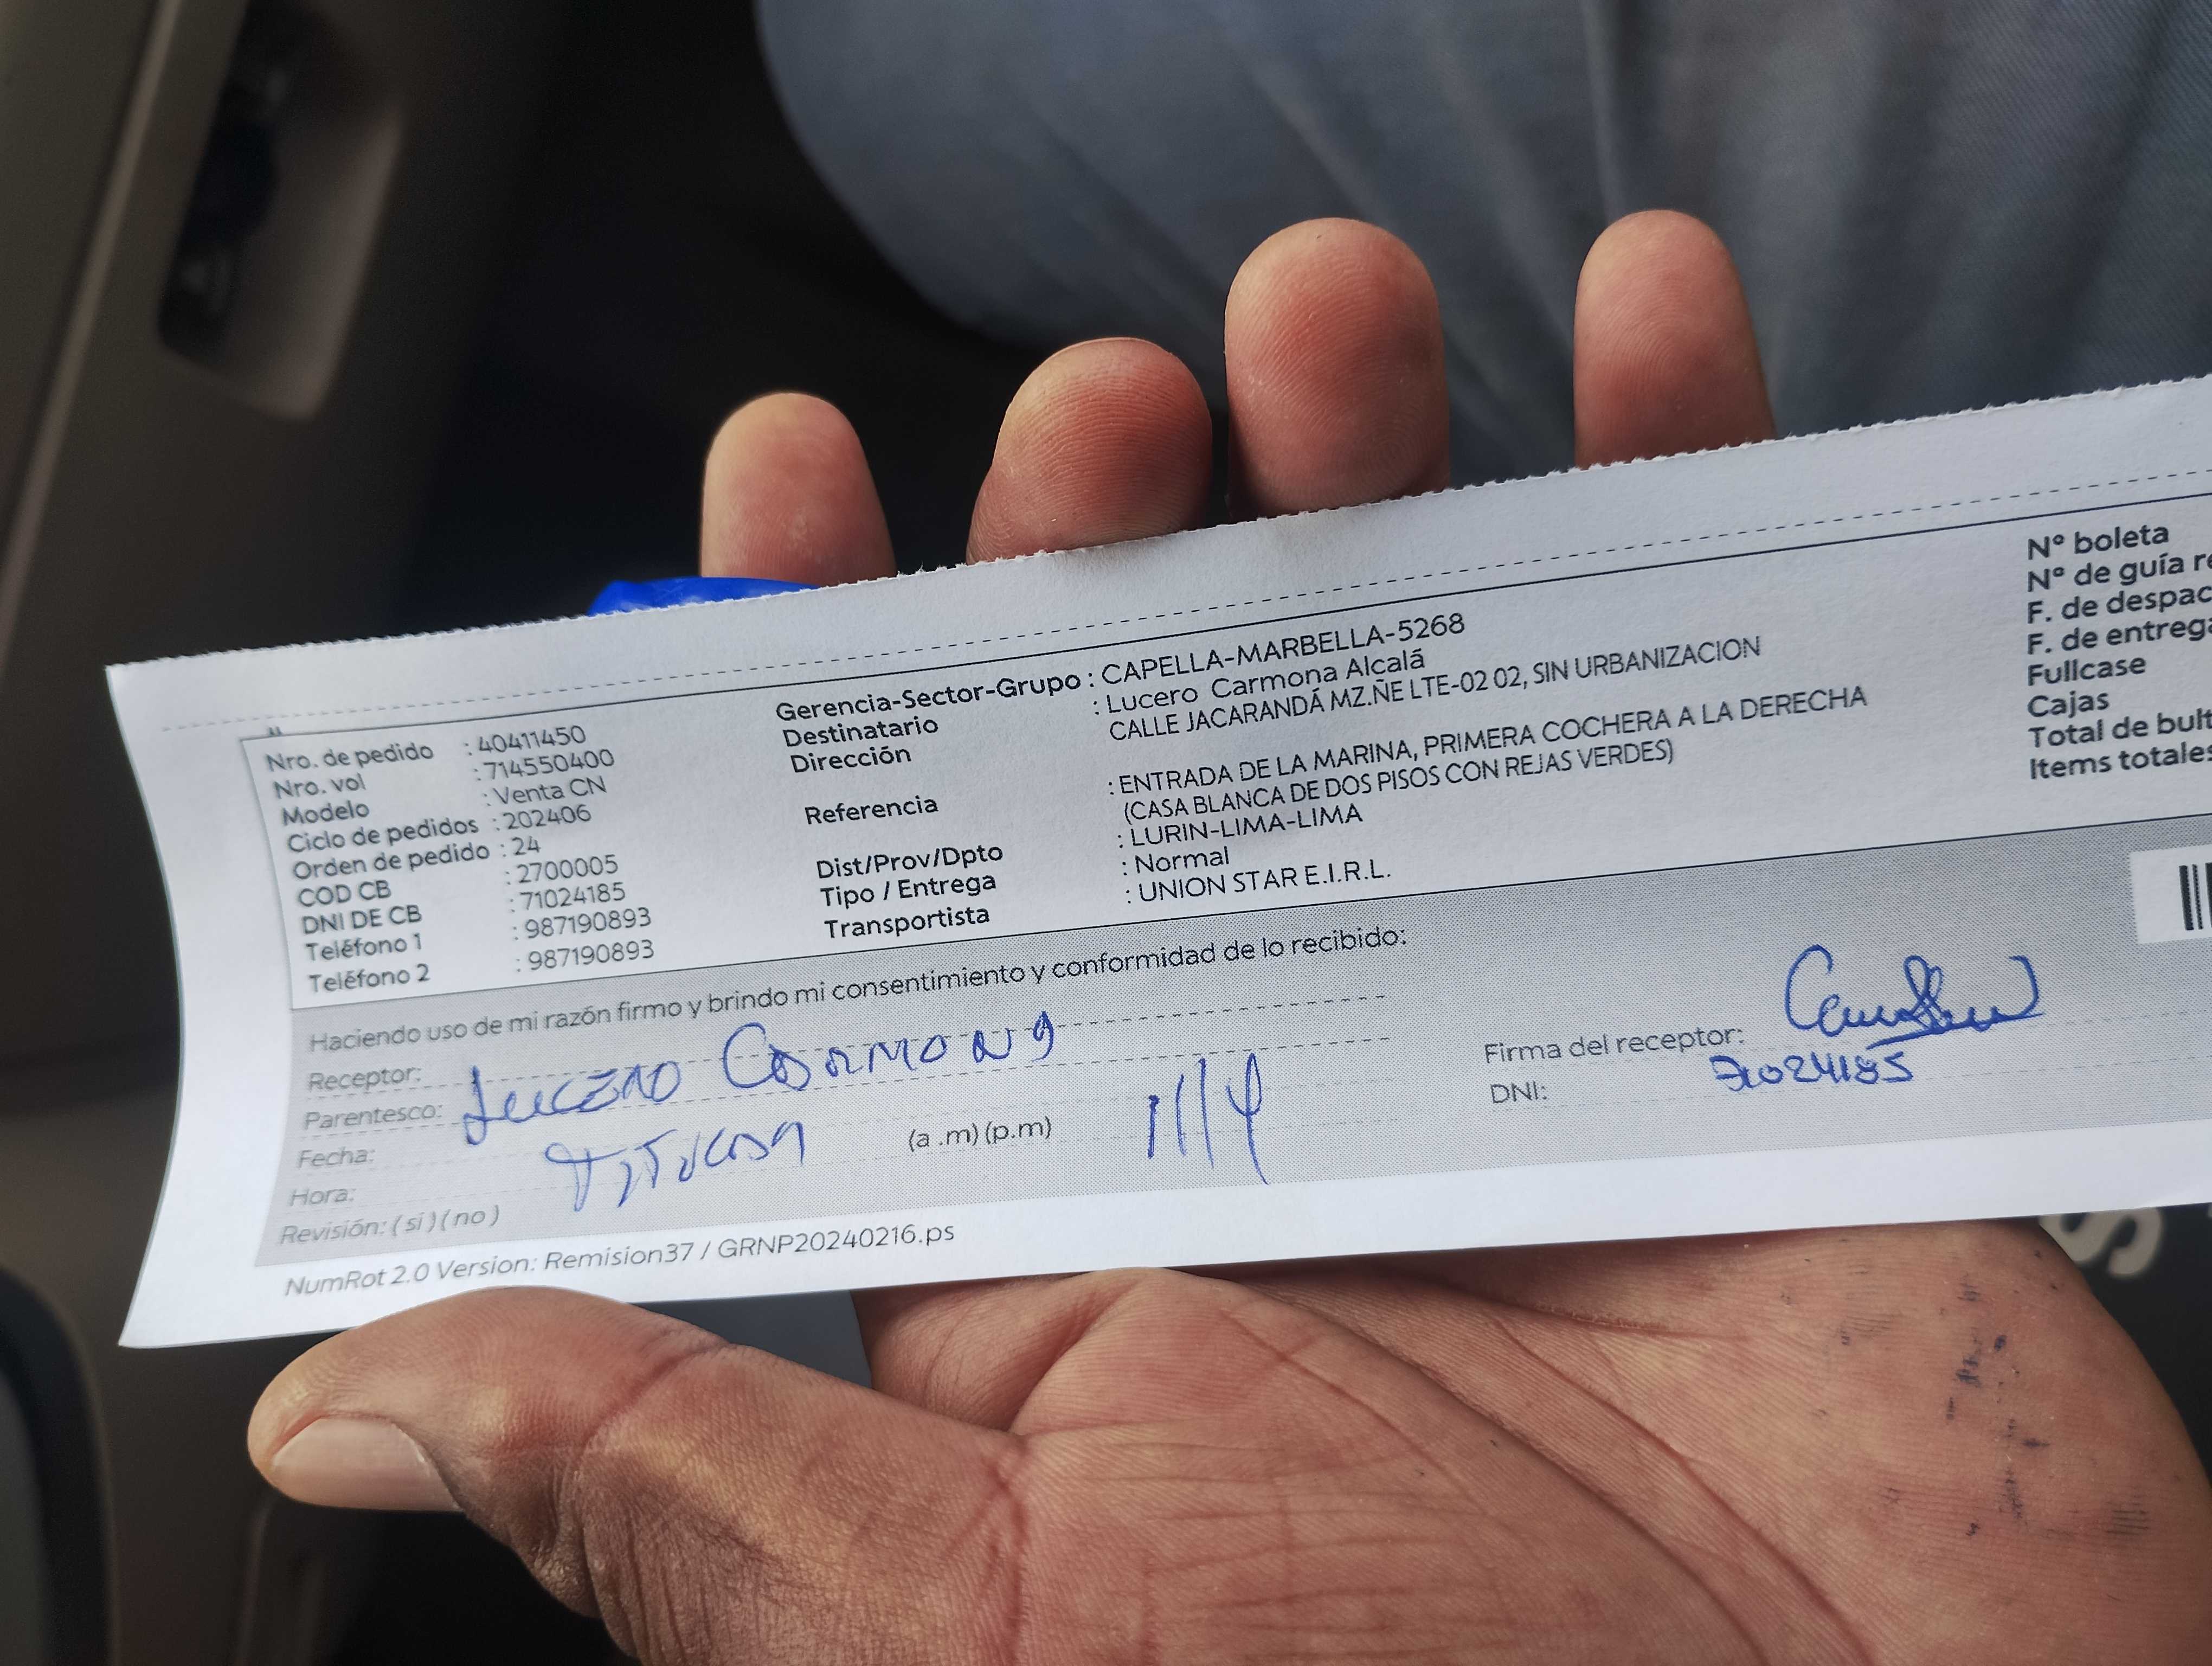 Nro. de pedido : 40411450
Nro. vol : 714550400
Modelo : Venta CN
Ciclo de pedidos : 202406
Orden de pedido : 24
COD CB : 2700005
DNI DE CB : 71024185
Teléfono 1 : 987190893
Teléfono 2 : 987190893
Gerencia-Sector-Grupo : CAPELLA-MARBELLA-5268
Destinatario : Lucero Carmona Alcalá
Dirección CALLE JACARANDÁ MZ.ÑE LTE-02 02, SIN URBANIZACION
Referencia : ENTRADA DE LA MARINA, PRIMERA COCHERA A LA DERECHA
(CASA BLANCA DE DOS PISOS CON REJAS VERDES)
Dist/Prov/Dpto : LURIN-LIMA-LIMA
Tipo / Entrega : Normal
Transportista : UNION STAR E.I.R.L.
Nº boleta
Nº de guía re
F. de despac
F. de entrega
Fullcase
Cajas
Total de bult
Items totales
Haciendo uso de mi razón firmo y brindo mi consentimiento y conformidad de lo recibido:
Receptor: Lucero Carmona
Parentesco: Titular
Fecha:
Hora: (a .m) (p.m)
Revisión: ( si ) ( no )
Firma del receptor:
DNI: 71024185
NumRot 2.0 Version: Remision37 / GRNP20240216.ps
S